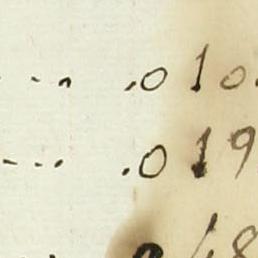 .010
.019
.018